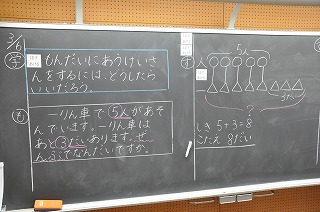 3/6
もんだいにあうけいさ
んをするには、どうしたら
いいだろう。
も
一りん車で5人があそ
んでいます。一りん車は
あと3だいあります。ぜ
んぶでなんだいですか。
ず
5人
人
一
3だい
?
しき 5+3=8
こたえ 8だい